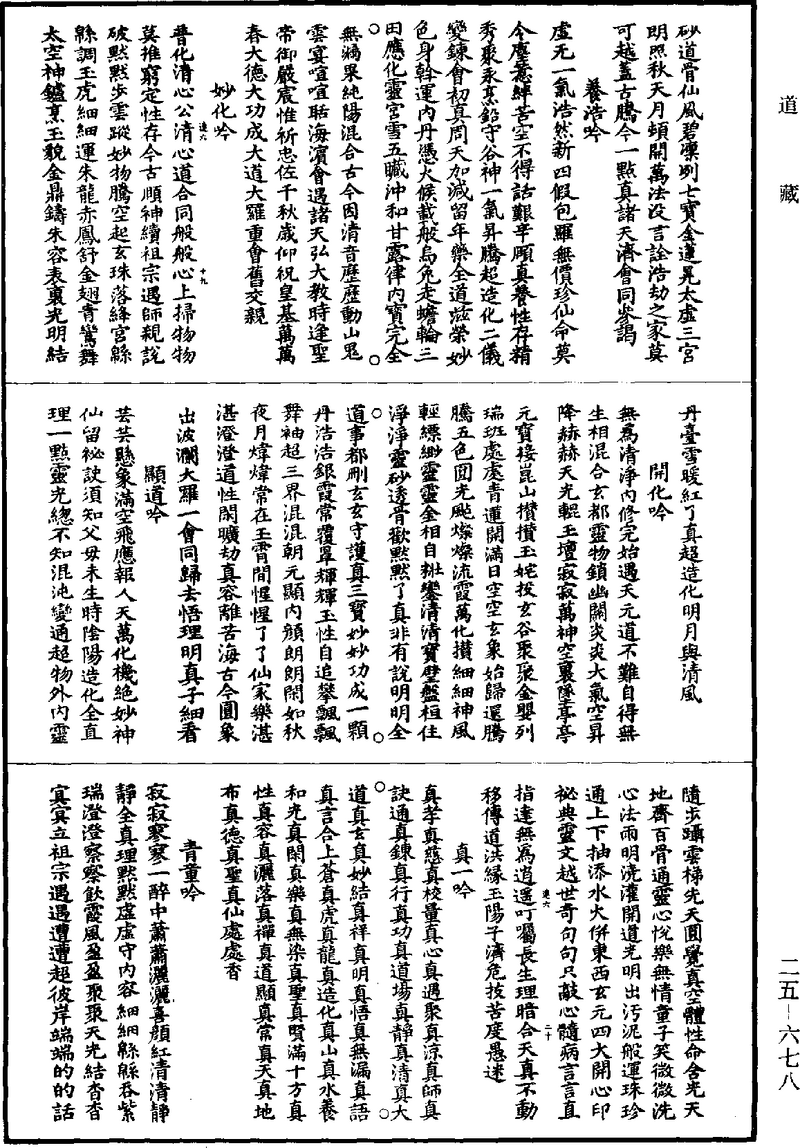 道藏
砂道骨仙風碧凜冽七寶金蓮晃太虛三宮
朗照秋天月頓開萬法沒言詮浩劫之家莫
可越蓋古騰今一點真諸天濟會同參謁
養浩吟
虛无一氣浩然新四假包羅無價珍仙命莫
令塵意絆苦空不得話艱辛頤真養性存精
秀聚汞烹鉛守谷神一氣昇騰超造化二儀
變鍊會初真周天加減留年藥全道茲榮妙
色身斡運內丹憑火候載般烏兔走蟾輪三
田應化靈宮雪五臟沖和甘露律內寶完全
無漏果純陽混合古今因清音歷歷動山鬼
雲宴喧喧聒海濱會遇諸天弘大教時逢聖
帝御嚴宸惟祈忠佐千秋歲仰祝皇基萬萬
春大德大功成大道大羅重會舊交親
妙化吟
普化清心公清心道合同般般心上掃物物
莫推窮定性存今古順神續祖宗遇師親說
破默默步雲蹤妙物騰空起玄珠落絳宮緜
緜調玉虎細細運朱龍赤鳳舒金翅青鸞舞
太空神爐烹玉貌金鼎鑄朱容表裏光明結
進六
十九
丹臺雪暖紅了真超造化明月與清風
開化吟
無為清淨內修完始遇天元道不難自得無
生相混合玄都靈物鎖幽關炎炎大氣空昇
降赫赫天光輥玉壇寂寂萬神空裏墜亭亭
元寶接崑山攢攢玉姹投玄谷聚聚金嬰列
瑞班處處青蓮開滿日空空玄象始歸還騰
騰五色圓光颭燦燦流霞萬化攢細細神風
輕縹緲靈靈金相自粧鑾清清寶壁盤桓住
淨淨靈砂透骨歡默默了真非有說明明全
道事都刪玄玄守護真三寶妙妙功成一顆
丹浩浩銀霞常覆罩輝輝玉性自追攀飄飄
舞袖超三界混混朝元顯內顏朗朗閑如秋
夜月煒煒常在玉霄間惺惺了了仙家樂湛
湛澄澄道性閑曠劫真容離苦海古今圓象
出波瀾大羅一會同歸去悟理明真子細看
顯道吟
芸芸懸象滿空飛應報人天萬化機絶妙神
仙留祕訣須知父母未生時陰陽造化全直
理一點靈光緫不知混沌變通超物外內靈
隨步躡雲梯先天圓覺真空體性命含光天
地齊百骨通靈心悅樂無情童子笑微微洗
心法雨明澆灌開道光明出污泥般運珠珍
通上下抽添水火併東西玄元四大開心印
祕典靈文越世奇句句只敲心髓病言言直
指達無為逍遥叮囑長生理暗合天真不動
移傳道洪緣玉陽子濟危拔苦度愚迷
進六
二十
真一吟
真孝真慈真校量真心真遇聚真涼真師真
訣通真鍊真行真功真道場真靜真清真大
道真玄真妙結真祥真明真悟真無漏真語
真言合上蒼真虎真龍真造化真山真水養
和光真閑真樂真無染真聖真賢滿十方真
性真容真灑落真禪真道顯真常真天真地
布真德真聖真仙處處香
青童吟
寂寂寥寥一醉中蕭蕭灑灑喜顏紅清清靜
靜全真理默默虛虛守內容細細緜緜吞紫
瑞澄澄察察飲霞風盈盈聚聚天光結杳杳
冥冥立祖宗遇遇遭遭超彼岸端端的的話
二五—六七八